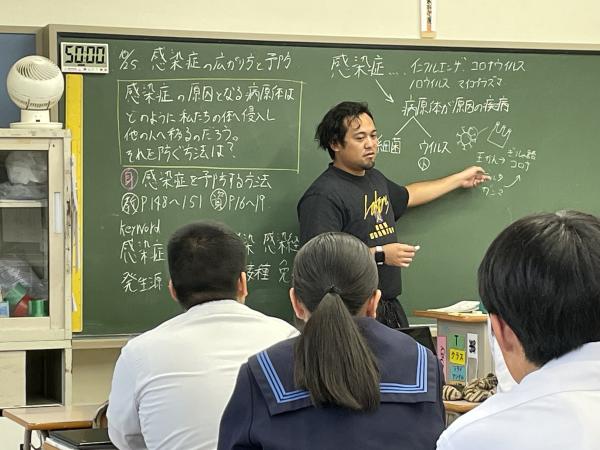 50:00
10/25 感染症の広がり方と予防
感染症の原因となる病原体は
どのように私たちの体へ侵入し
他の人へ移るのだろう。
それを防ぐ方法は?
身 感染症を予防する方法
教 P148〜151 P16〜19
Keyword
感染 感染経
発生源 接種
感染症…. インフルエンザ コロナウイルス
ノロウイルス マイコプラズマ
病原体が原因の疾病
細菌
ウイルス
王かん→
コロナ
Lakers
クラス